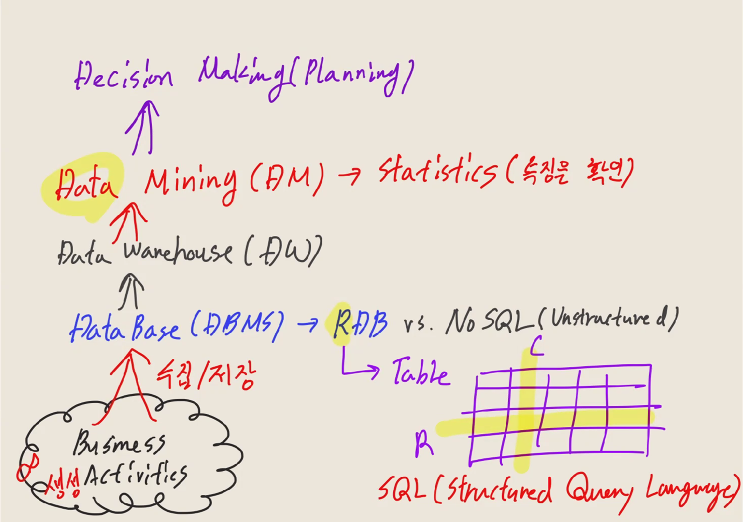 Decision Making (Planning)
Data Mining (DM) → Statistics (특징을 확연)
Data Warehouse (DW)
DataBase (DBMS) → RDB vs. NoSQL (Unstructured)
수집/저장
Table
C
R
Business
생성 Activities
SQL (Structured Query Language)